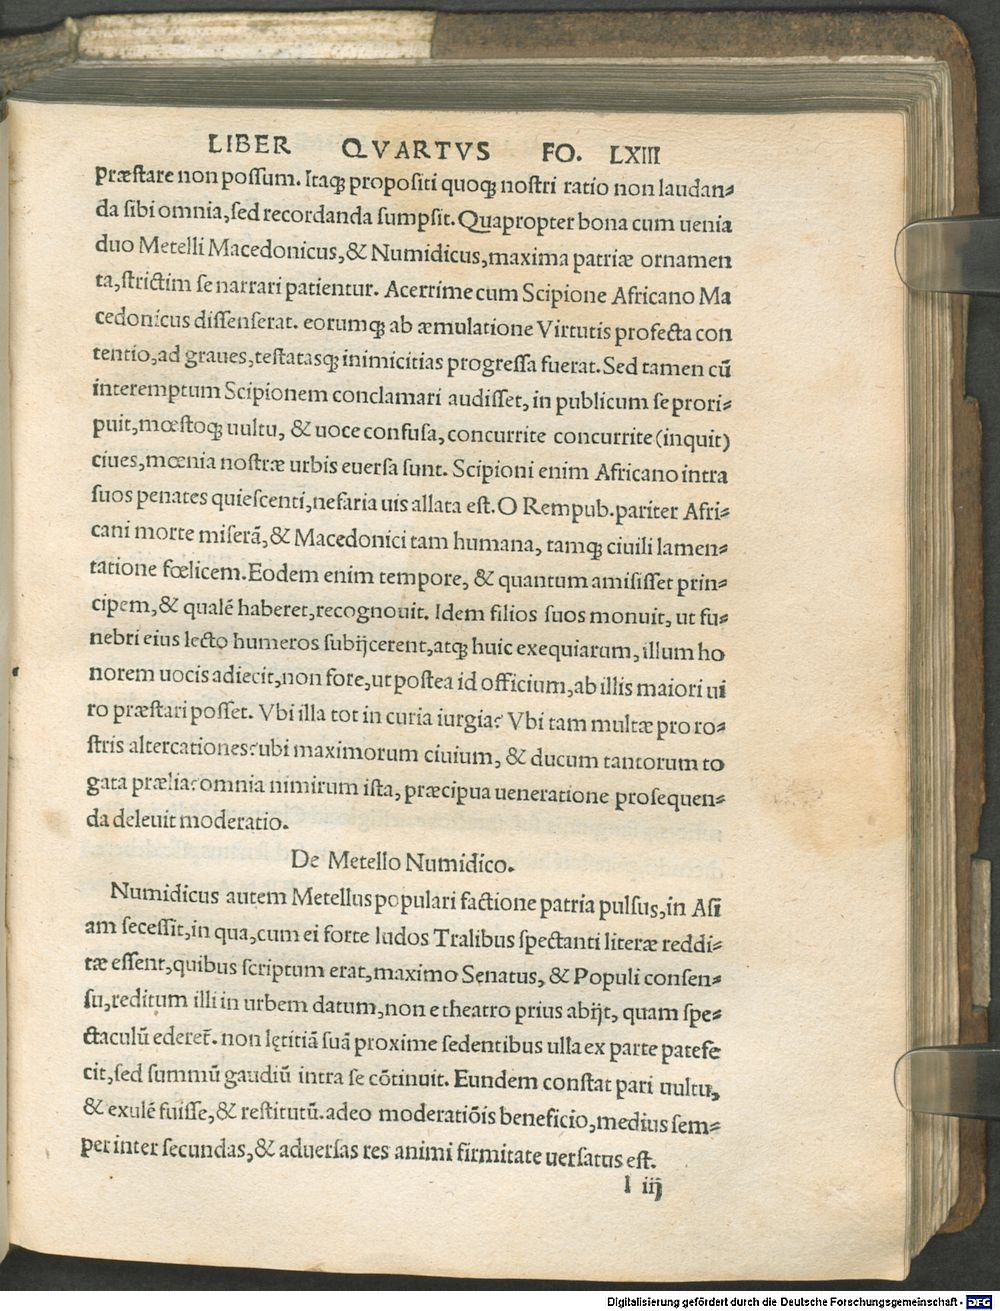 LIBER QVARTVS FO. LXIII
præstare non possum. Itaqꝫ propositi quoqꝫ nostri ratio non laudan⸗
da sibi omnia, sed recordanda sumpsit. Quapropter bona cum uenia
duo Metelli Macedonicus, & Numidicus, maxima patriæ ornamen
ta, strictim se narrari patientur. Acerrime cum Scipione Africano Ma
cedonicus dissenserat. eorumqꝫ ab æmulatione Virtutis profecta con
tentio, ad graues, testatasqꝫ inimicitias progressa fuerat. Sed tamen cũ
interemptum Scipionem conclamari audisset, in publicum se prori⸗
puit, mœstoqꝫ uultu, & uoce confusa, concurrite concurrite (inquit)
ciues, mœnia nostræ urbis euersa sunt. Scipioni enim Africano intra
suos penates quiescenti, nefaria uis allata est. O Rempub. pariter Afri⸗
cani morte miserã, & Macedonici tam humana, tamqꝫ ciuili lamen⸗
tatione fœlicem. Eodem enim tempore, & quantum amisisset prin⸗
cipem, & qualẽ haberet, recognouit. Idem filios suos monuit, ut fu⸗
nebri eius lecto humeros subijcerent, atqꝫ huic exequiarum, illum ho
norem uocis adiecit, non fore, ut postea id officium, ab illis maiori ui
ro præstari posset. Vbi illa tot in curia iurgia? Vbi tam multæ pro ro⸗
stris altercationes? ubi maximorum ciuium, & ducum tantorum to
gata prælia? omnia nimirum ista, præcipua ueneratione prosequen⸗
da deleuit moderatio.
De Metello Numidico.
Numidicus autem Metellus populari factione patria pulsus, in Asi
am secessit, in qua, cum ei forte ludos Tralibus spectanti literæ reddi⸗
tæ essent, quibus scriptum erat, maximo Senatus, & Populi consen⸗
su, reditum illi in urbem datum, non e theatro prius abijt, quam spe⸗
ctaculũ ederet̃. non lętitiã suã proxime sedentibus ulla ex parte patefe
cit, sed summũ gaudiũ intra se cõtinuit. Eundem constat pari uultu,
& exulẽ fuisse, & restitutũ. adeo moderatiõis beneficio, medius sem⸗
per inter secundas, & aduersas res animi firmitate uersatus est.
l iij
Digitalisierung gefördert durch die Deutsche Forschungsgemeinschaft - DFG